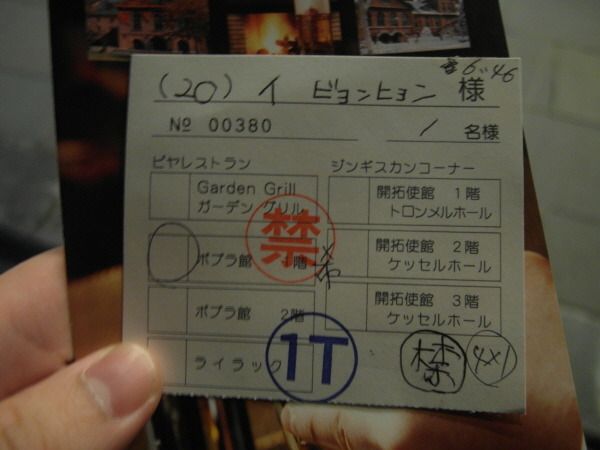 6:46
(20) イ ビョンヒョン 様
№ 00380 1 名様
ビヤレストラン
ジンギスカンコーナー
Garden Grill
ガーデン グリル
ポプラ館 1階
ポプラ館 2階
ライラック
開拓使館 1階
トロンメルホール
開拓使館 2階
ケッセルホール
開拓使館 3階
ケッセルホール
禁
1T
禁
4x1